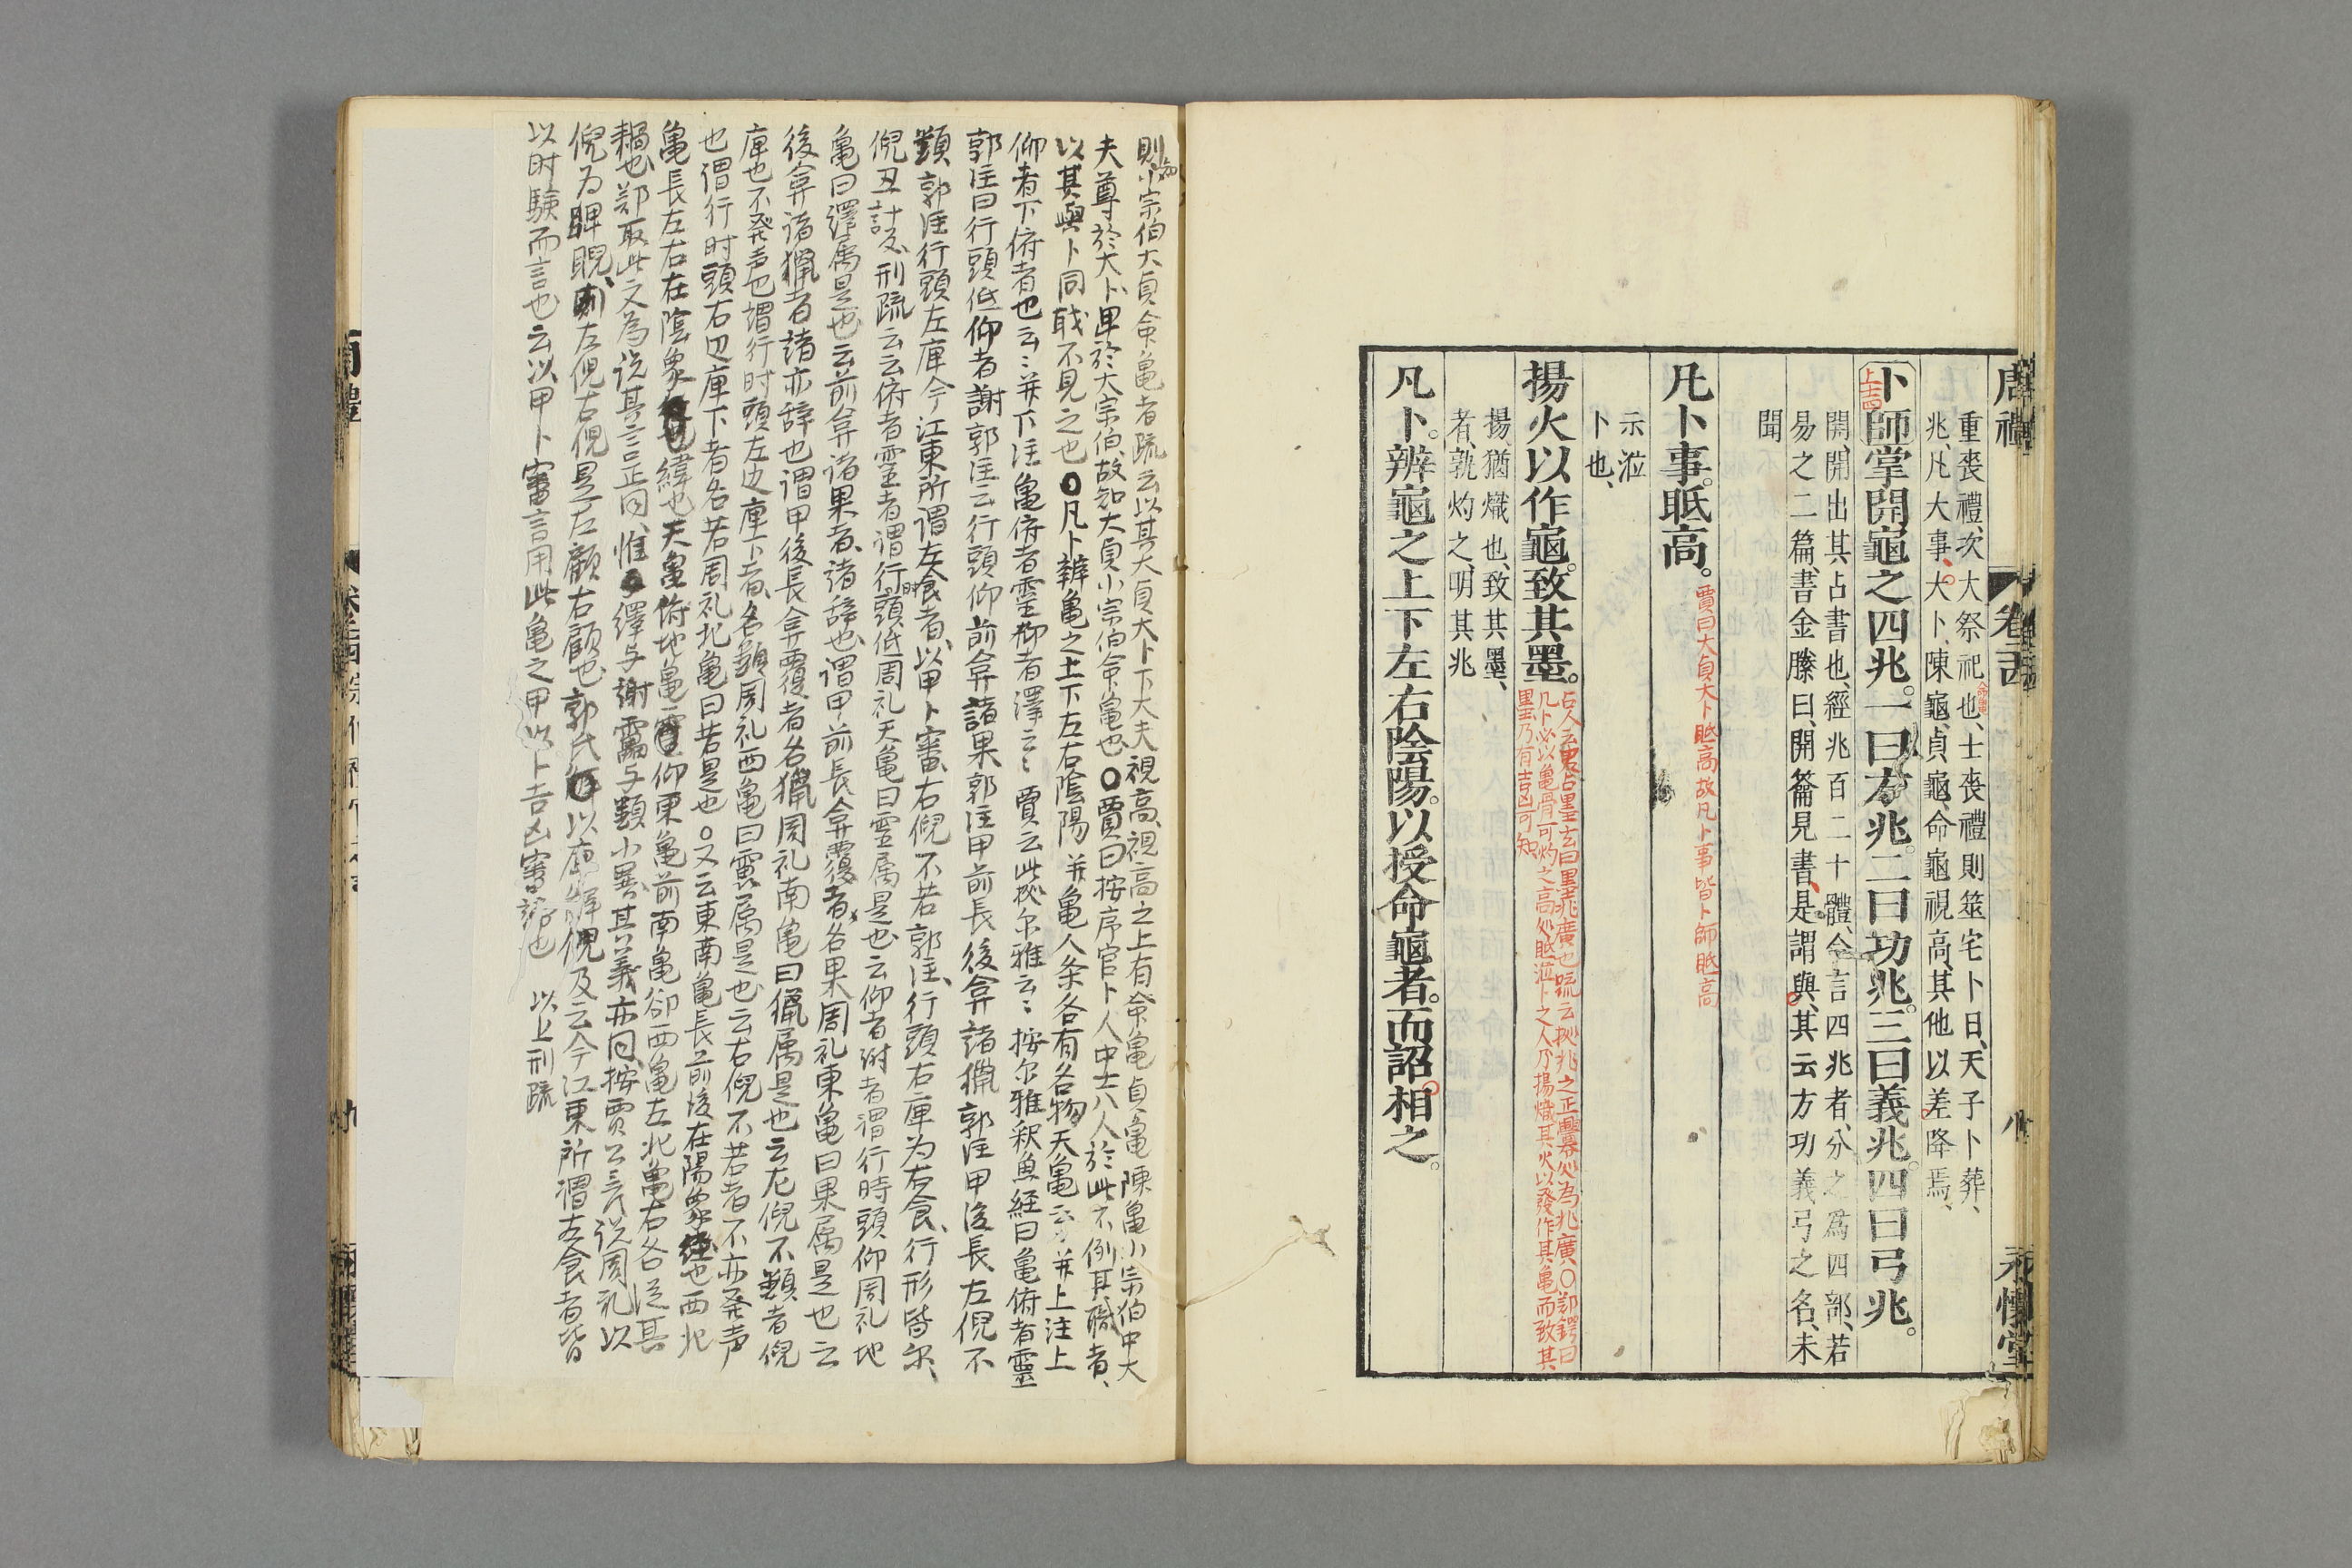 周禮
卷二百
八
永懷堂
重喪禮、次大祭祀也、士喪禮則筮宅卜日、天子卜葬、
命龜
兆、凡大事、大卜、陳龜、貞龜、命龜視高、其他以差降焉、
卜師掌開龜之四兆。一曰方兆。二曰功兆。三曰義兆。四曰弓兆。
上士四
開、開出其占書也、經兆百二十體、今言四兆者、分之爲四部、若
易之二篇、書金縢曰、開籥見書、是謂與、其云方功義弓之名、未
聞
凡卜事。眡高。
賈曰大貞大卜眡高故凡卜事皆卜師眡高
示涖
卜也、
揚火以作龜。致其墨。
占人云史占墨玄曰墨兆廣也疏云據兆之正璺处為兆廣〇鄭鍔曰
凡卜必以亀骨可灼之高处眡涖卜之人乃揚熾其火以發作其亀而致其
墨乃有吉凶可知
揚、猶熾也、致其墨、
者、孰灼之、明其兆
凡卜。辨龜之上下左右陰陽。以授命龜者。而詔相之。
則小宗伯大貞命亀者疏云以其大貞大卜下大夫視高視高之上有命亀貞亀陳亀小宗伯中大
夫尊於大卜卑於大宗伯故知大貞小宗伯命亀也〇賈曰按序官卜人中士八人於此不例其職者、
以其與卜同職不見之也〇凡卜辨亀之上下左右陰陽 并亀人条各有各物天亀云々并上注上
仰者下俯者也云〻并下注亀俯者霊仰者澤云〻 賈云此拠尔雅云〻 按尔雅釈魚経曰亀俯者靈
郭注曰行頭低仰者謝郭注云行頭仰前弇諸果郭注甲前長後弇諸猟郭注甲後長左倪不
類郭注行頭左庳今江東所謂左食者、以甲卜審、右倪不若郭注、行頭右庳为右食、行形皆尔、
倪 刑疏云云俯者霊者謂行時頭低周礼天亀曰霊属是也云仰者谢者謂行時頭仰周礼地
亀曰繹属是也云前弇诸果者、諸辞也謂甲前長弇覆者名果周礼東亀曰果属是也云
後弇诸猟者諸亦辞也謂甲後長弇覆者名猟周礼南亀曰猟属是也云左倪不類者倪
庳也不発声也謂行時頭左边庳下者、名類周礼西亀曰雷属是也云右倪不若者不亦発声
也謂行时頭右边庳下者名若周礼北亀曰若属是也〇又云東南亀長前後在陽象経也西北
亀長左右在陰象緯也天亀俯地亀仰東亀前南亀卻西亀左北亀右各従其
耦也鄭取此文為说其言正同、惟繹与謝靁与類小異其義亦同、按賈公彦说周礼以
倪为睥睨、則左倪右倪是左顧右顧也郭氏以庳解倪及云今江東所謂左食者皆
以时験而言也云以甲卜審言用此亀之甲以卜吉凶審諦也 以上刑疏